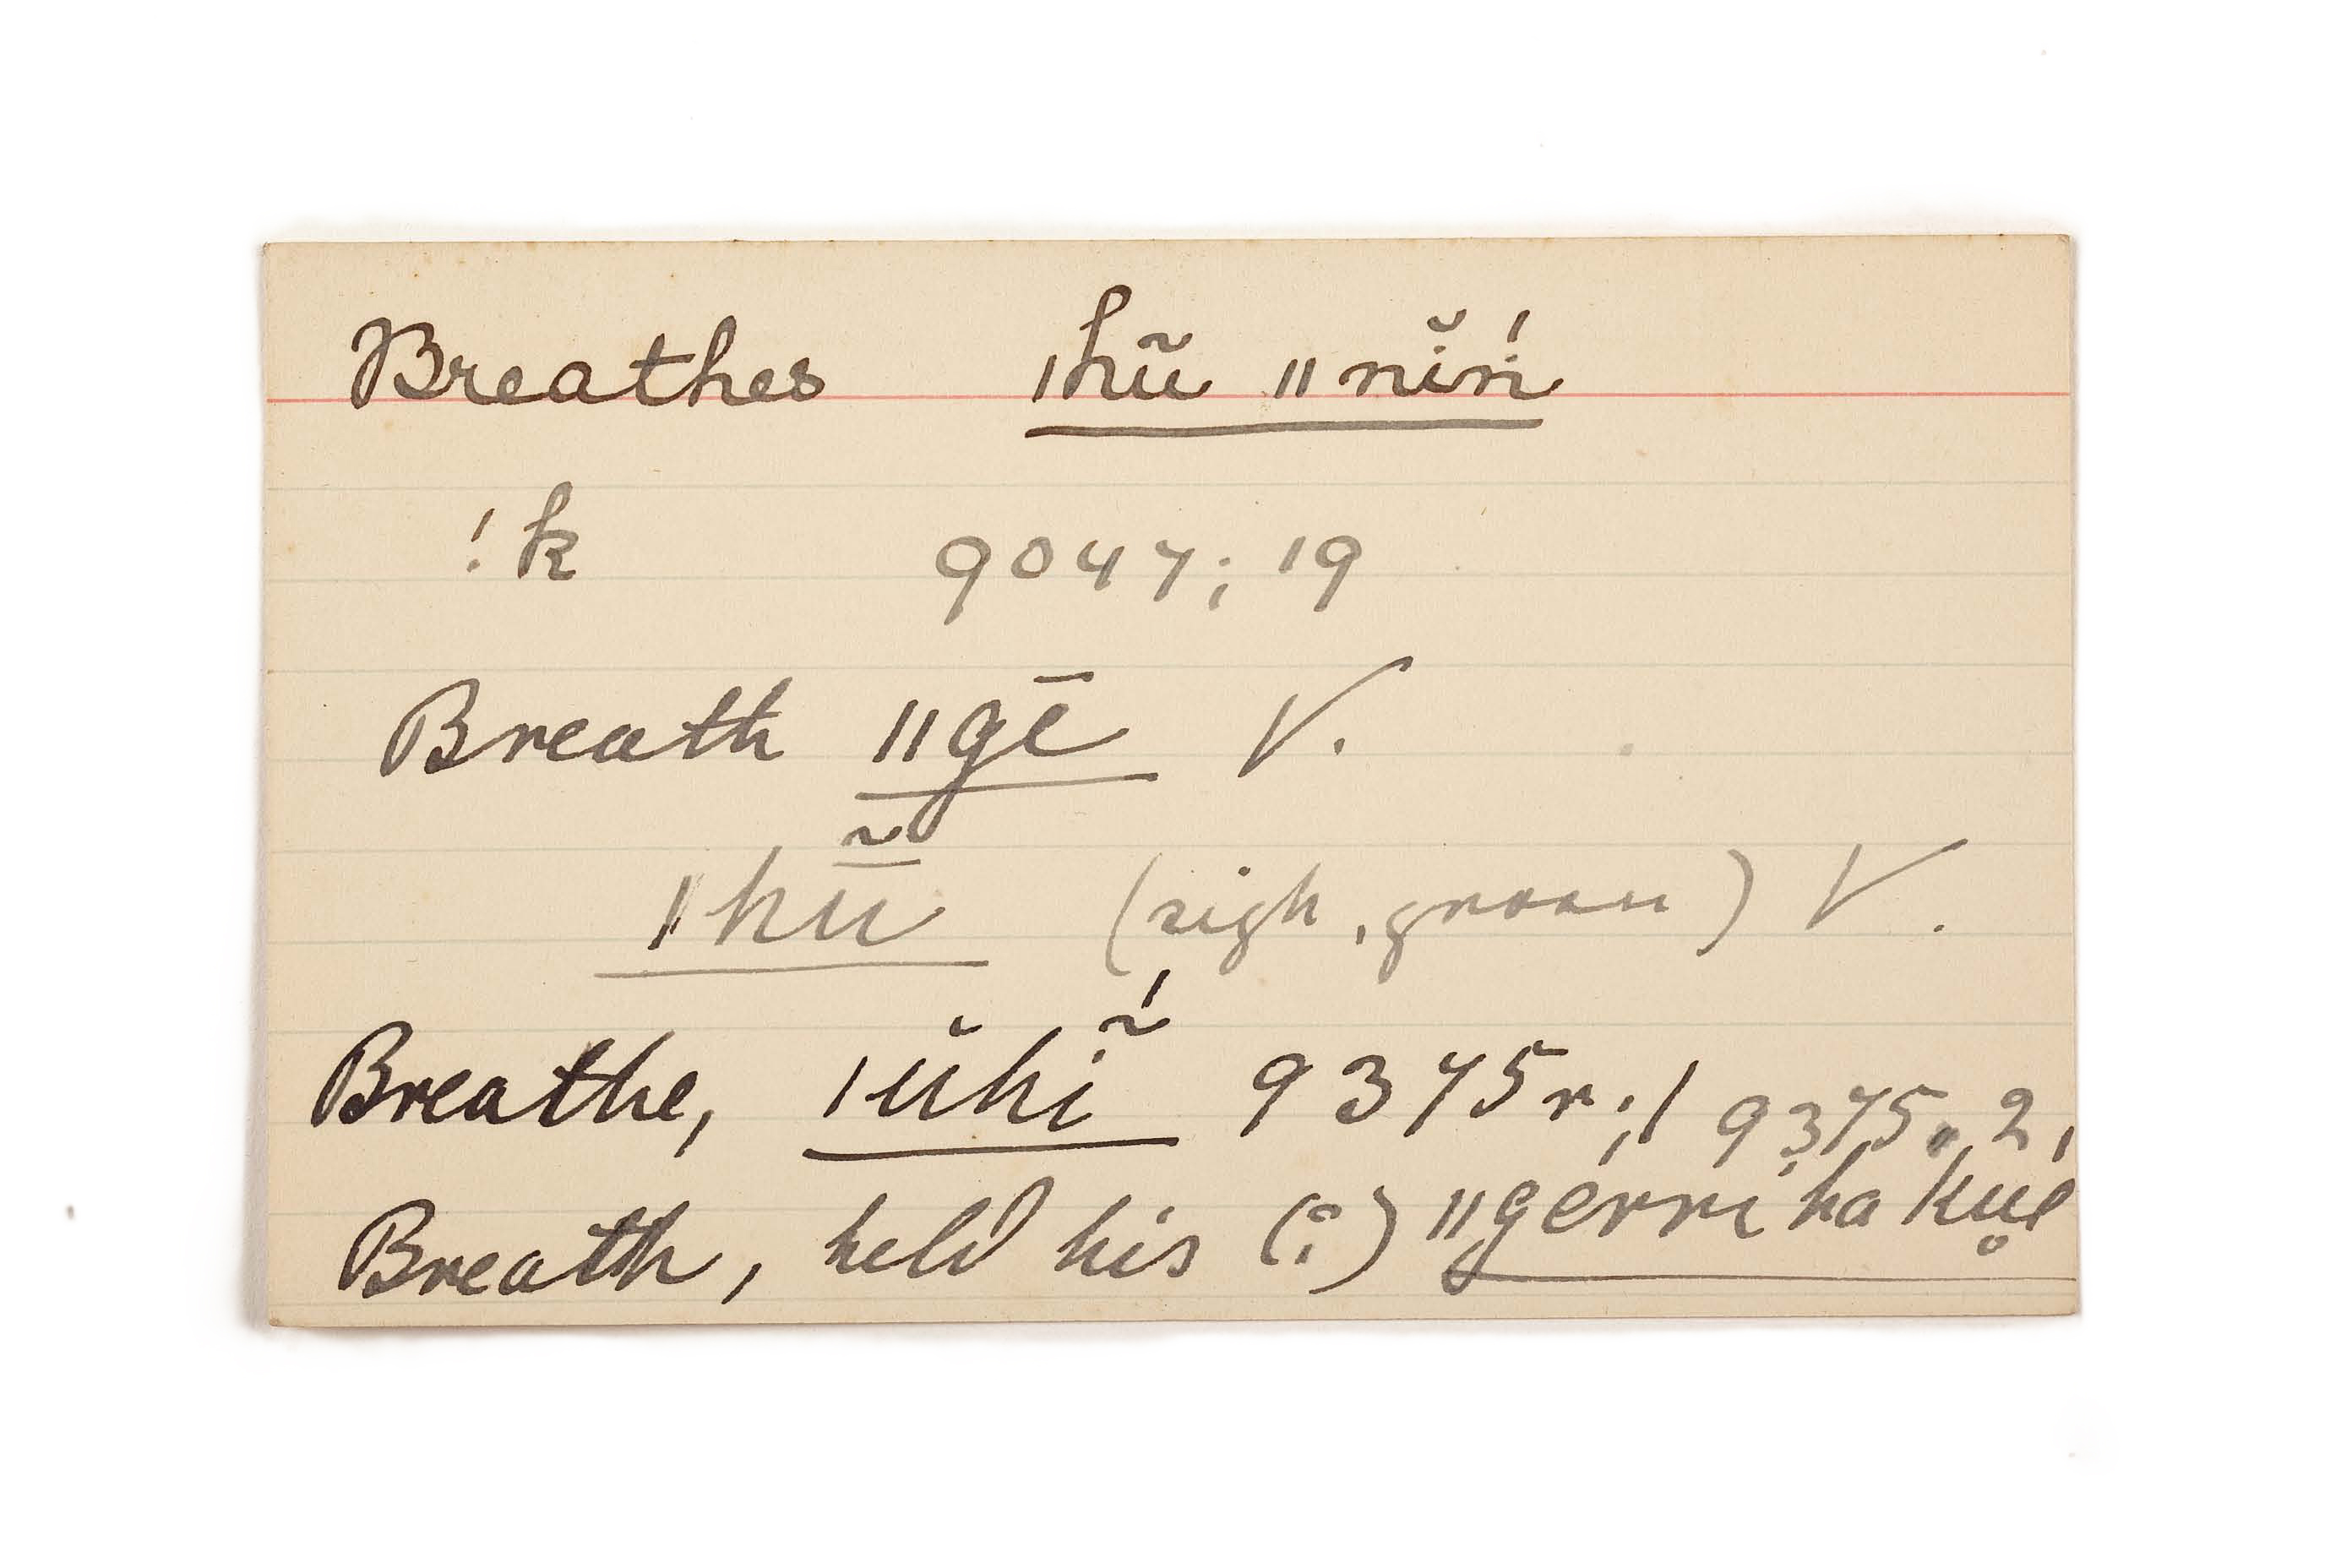 Breathes ǀhũ ǁnĭŋ́
!k 9047; 19
Breath ǁgē V.
ǀhũ̄ (sigh, groan) V.
Breathe, ǀŭhĩ́ 9375r; / 9375, 2,
Breath, held his (?) ǁgérri ha kṳe